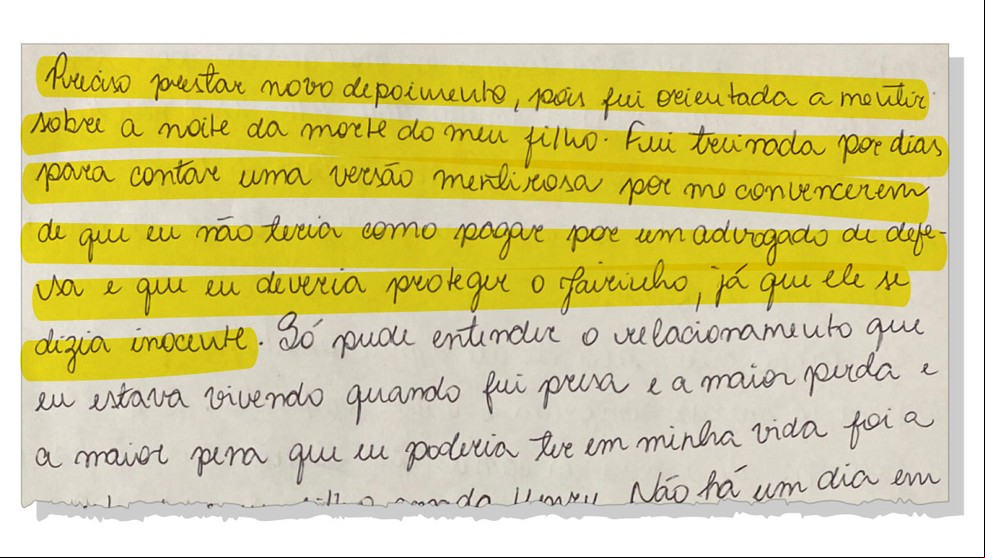 Preciso prestar novo depoimento, pois fui orientada a mentir
sobre a noite da morte do meu filho. Fui treinada por dias
para contar uma versão mentirosa por me convencerem
de que eu não teria como pagar por um advogado de defe-
sa e que eu deveria proteger o Jairinho, já que ele se
dizia inocente. Só pude entender o relacionamento que
eu estava vivendo quando fui presa e a maior perda e
a maior pena que eu poderia ter em minha vida foi a
Não há um dia em